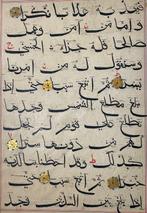 فيعذبه عذابا نكرا
واما من امن وعمل
صالحا فله جزاء الحسنى
وسنقول له من امرنا
يسرا ثم اتبع سببا حتى اذا
بلغ مطلع الشمس وجدها
تطلع على قوم لم نجعل
لهم من دونها سترا
كذلك وقد احطنا بما لديه
خبرا ثم اتبع سببا حتى
اذا بلغ بين السدين وجد